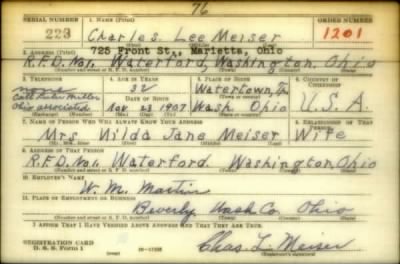 76
SERIAL NUMBER 1. NAME (Print) ORDER NUMBER
223 Charles Lee Meiser 1201
725 Front St., Marietta, Ohio
2. ADDRESS (Print)
R.F.D. No1, Waterford, Washington, Ohio
3. TELEPHONE 4. AGE IN YEARS 5. PLACE OF BIRTH 6. COUNTRY OF CITIZENSHIP
none 32 Watertown,
DATE OF BIRTH
Ohio associated Nov 23 1907 Wash Ohio U.S.A.
7. NAME OF PERSON WHO WILL ALWAYS KNOW YOUR ADDRESS 8. RELATIONSHIP OF THAT PERSON
Mrs Hilda Jane Meiser Wife
9. ADDRESS OF THAT PERSON
R.F.D. No1, Waterford. Washington, Ohio
10. EMPLOYER'S NAME
W. M. Martin
11. PLACE OF EMPLOYMENT OR BUSINESS
Beverly Wash Co. Ohio
I AFFIRM THAT I HAVE VERIFIED ABOVE ANSWERS AND THAT THEY ARE TRUE.
REGISTRATION CARD
D. S. S. FORM 1
Chas. L. Meiser